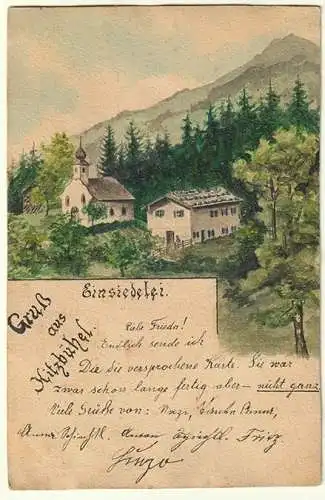 Einsiedelei.
Gruß
aus
Kitzbühel.
Liebe Frieda!
Endlich sende ich
Dir die versprochene Karte. Sie war
zwar schon lange fertig aber – nicht ganz
Viele Grüße von:
Anna Fritz.
Hugo